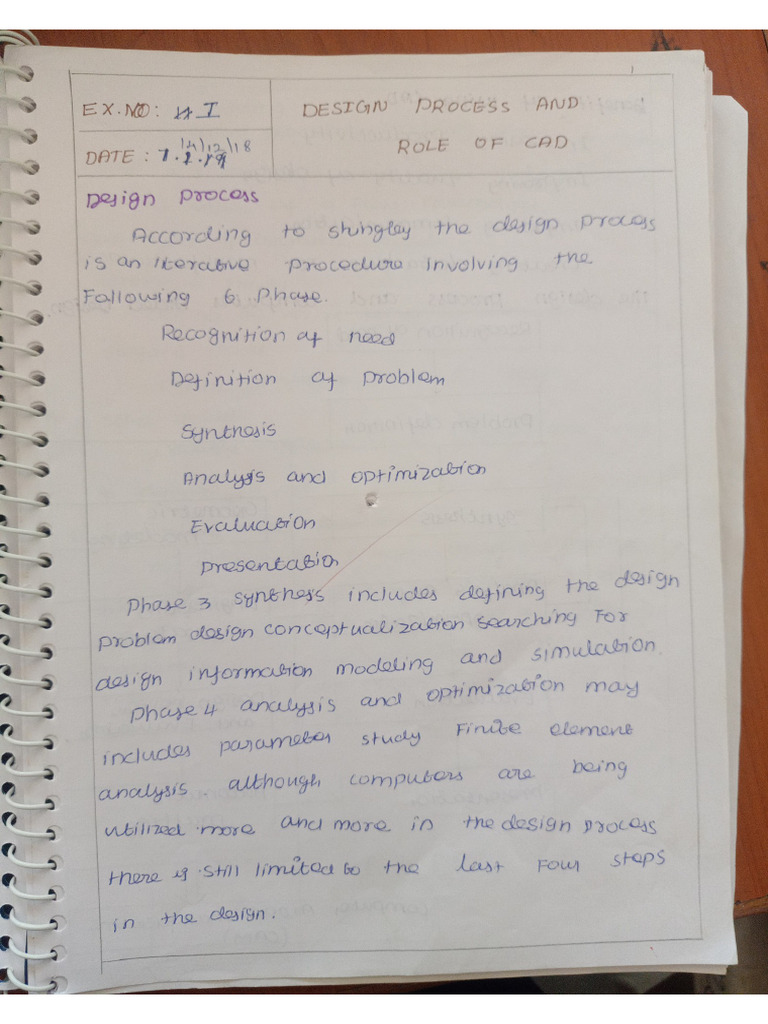 EX.NO: I
DESIGN PROCESS AND
ROLE OF CAD
DATE : 14/12/18
Design process
According to shingley the design process
is an iterative procedure involving the
Following 6 Phase.
Recognition of need
Definition of problem
Synthesis
Analysis and optimization
Evaluation
presentation
phase 3 synthess includes defining the design
problem design conceptualization searching For
design information modeling and simulation.
phase 4 analysis and optimization may
includes parameter study Finite element
analysis. although computers are being
utilized more and more in the design process
there is still limited to the last Four steps
in the design.